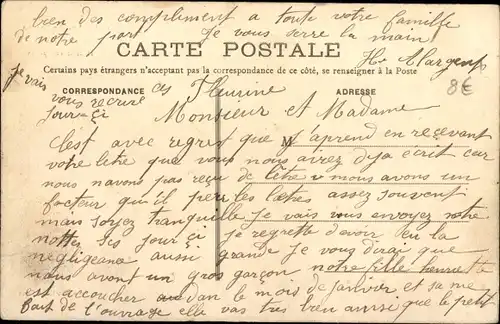 bien des compliment a toute votre famille
de notre part Je vous serre la main
CARTE POSTALE
Certains pays étrangers n'acceptent pas la correspondance de ce côté, se renseigner à la Poste
8€
CORRESPONDANCE
ADRESSE
je vais
vous recrire ces
jour-çi
Fleurine
Monsieur et Madame
C'est avec regret que j'aprend en reçevant
M
votre letre que vous nous avirez deja écrit car
nous navons pas reçu de lêtre v nous avons un
facteur qui il pers les lætres assez souvent
mais soyez tranquille Je vais vous envoyez notre
nottes ses jour çi je regrette d'avoir eu la
négligeance aussi grande Je vous dirai que
nous avont un gros garçon notre fille henriette
est accoucher dan le mois de janvier et sa me
fait de l'ouvrage elle vas tres bien ainsi que le petit